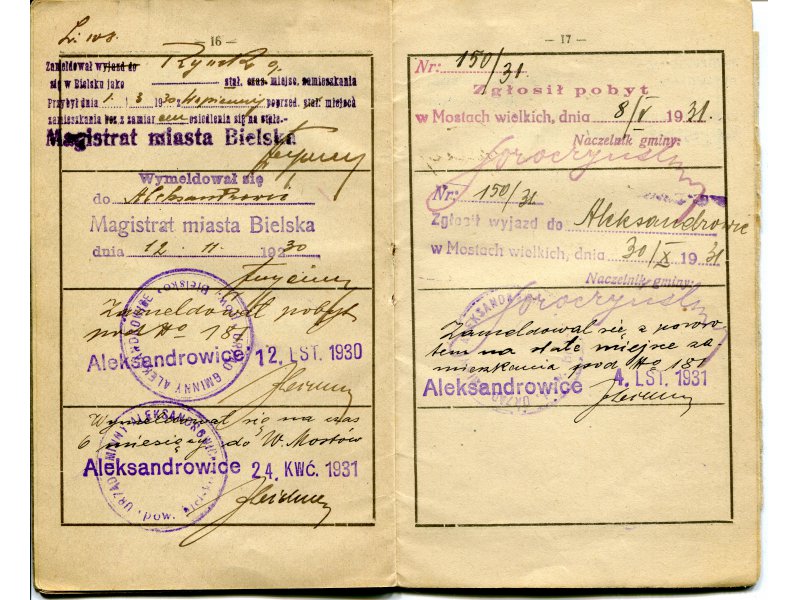 L. 108.
— 16 —
Zameldował wyjazd do Rynek 9.
się w Bielsku jako stał. czas. miejsc. zamieszkania
Przybył dnia 1. 3 1930 z Wapienicy poprzed. stał. miejsca
zamieszkania bez z zamiarem osiedlenia się na stałe.-
Magistrat miasta Bielska
Wymeldował się
do Aleksandrowic
Magistrat miasta Bielska
dnia 12. 11. 1930
Zameldował pobyt
pod No 181
Aleksandrowice 12. LST. 1930
Wymeldował się na czas
6 miesięcy do W. Mostów
Aleksandrowice 24. KWĆ. 1931
— 17 —
Nr: 150/31
Zgłosił pobyt
w Mostach wielkich, dnia 8/V 1931.
Naczelnik gminy:
Nr: 150/31
Zgłosił wyjazd do Aleksandrowic
w Mostach wielkich, dnia 30/X 1931
Naczelnik gminy:
Zameldował się z powro-
tem na stałe miejsce za-
mieszkania pod No 181
Aleksandrowice 4. LST. 1931